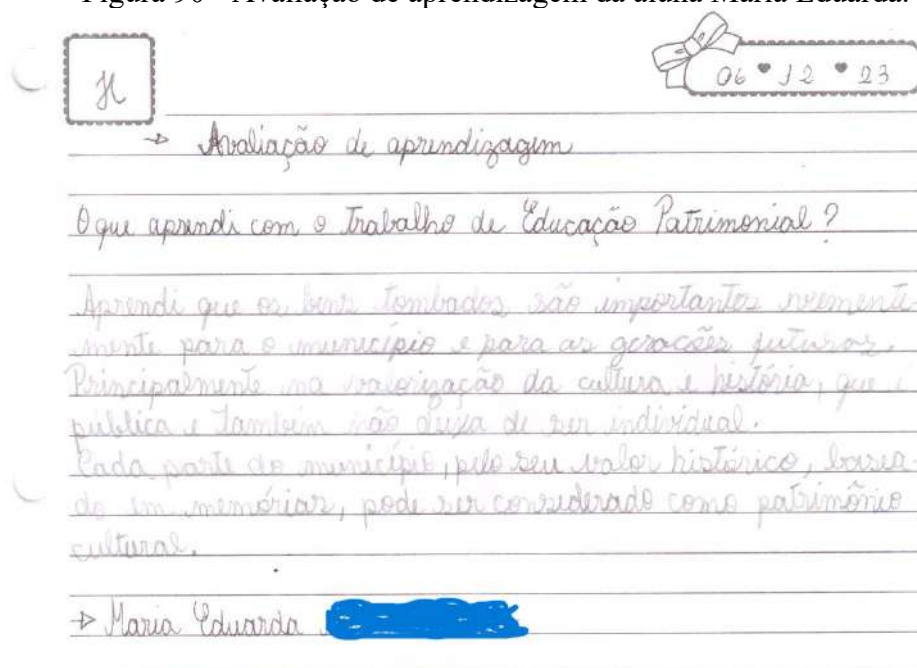 Figura 90 - Avaliação de aprendizagem da aluna Maria Eduarda.
H
06 12 23
Avaliação de aprendizagem
O que aprendi com o trabalho de Educação Patrimonial?
Aprendi que os bens tombados são importantes
mente para o município e para as gerações futuras.
Principalmente na valorização da cultura e história, que é
pública e também não deixa de ser individual.
Cada parte do município, pelo seu valor histórico, basea-
do em memórias, pode ser considerado como patrimônio
cultural.
Maria Eduarda